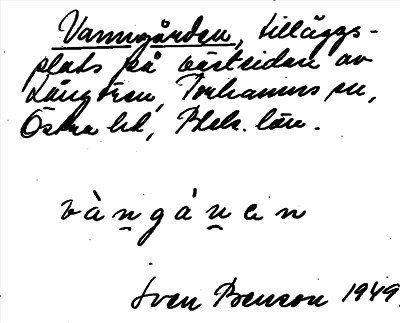 Vanngården, tilläggs-
plats på västsidan av
Långören, Torhamns sn,
Östra hd, Blek. län.
vàngá̱ṉen
Sven Benson 1949